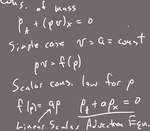 Cons. of mass
ρ_t + (ρv)_x = 0
Simple case v = a = const
ρv = f(ρ)
Scalar cons. law for ρ
f(ρ) = aρ ρ_t + aρ_x = 0
Linear Scalar Advection Eqn.